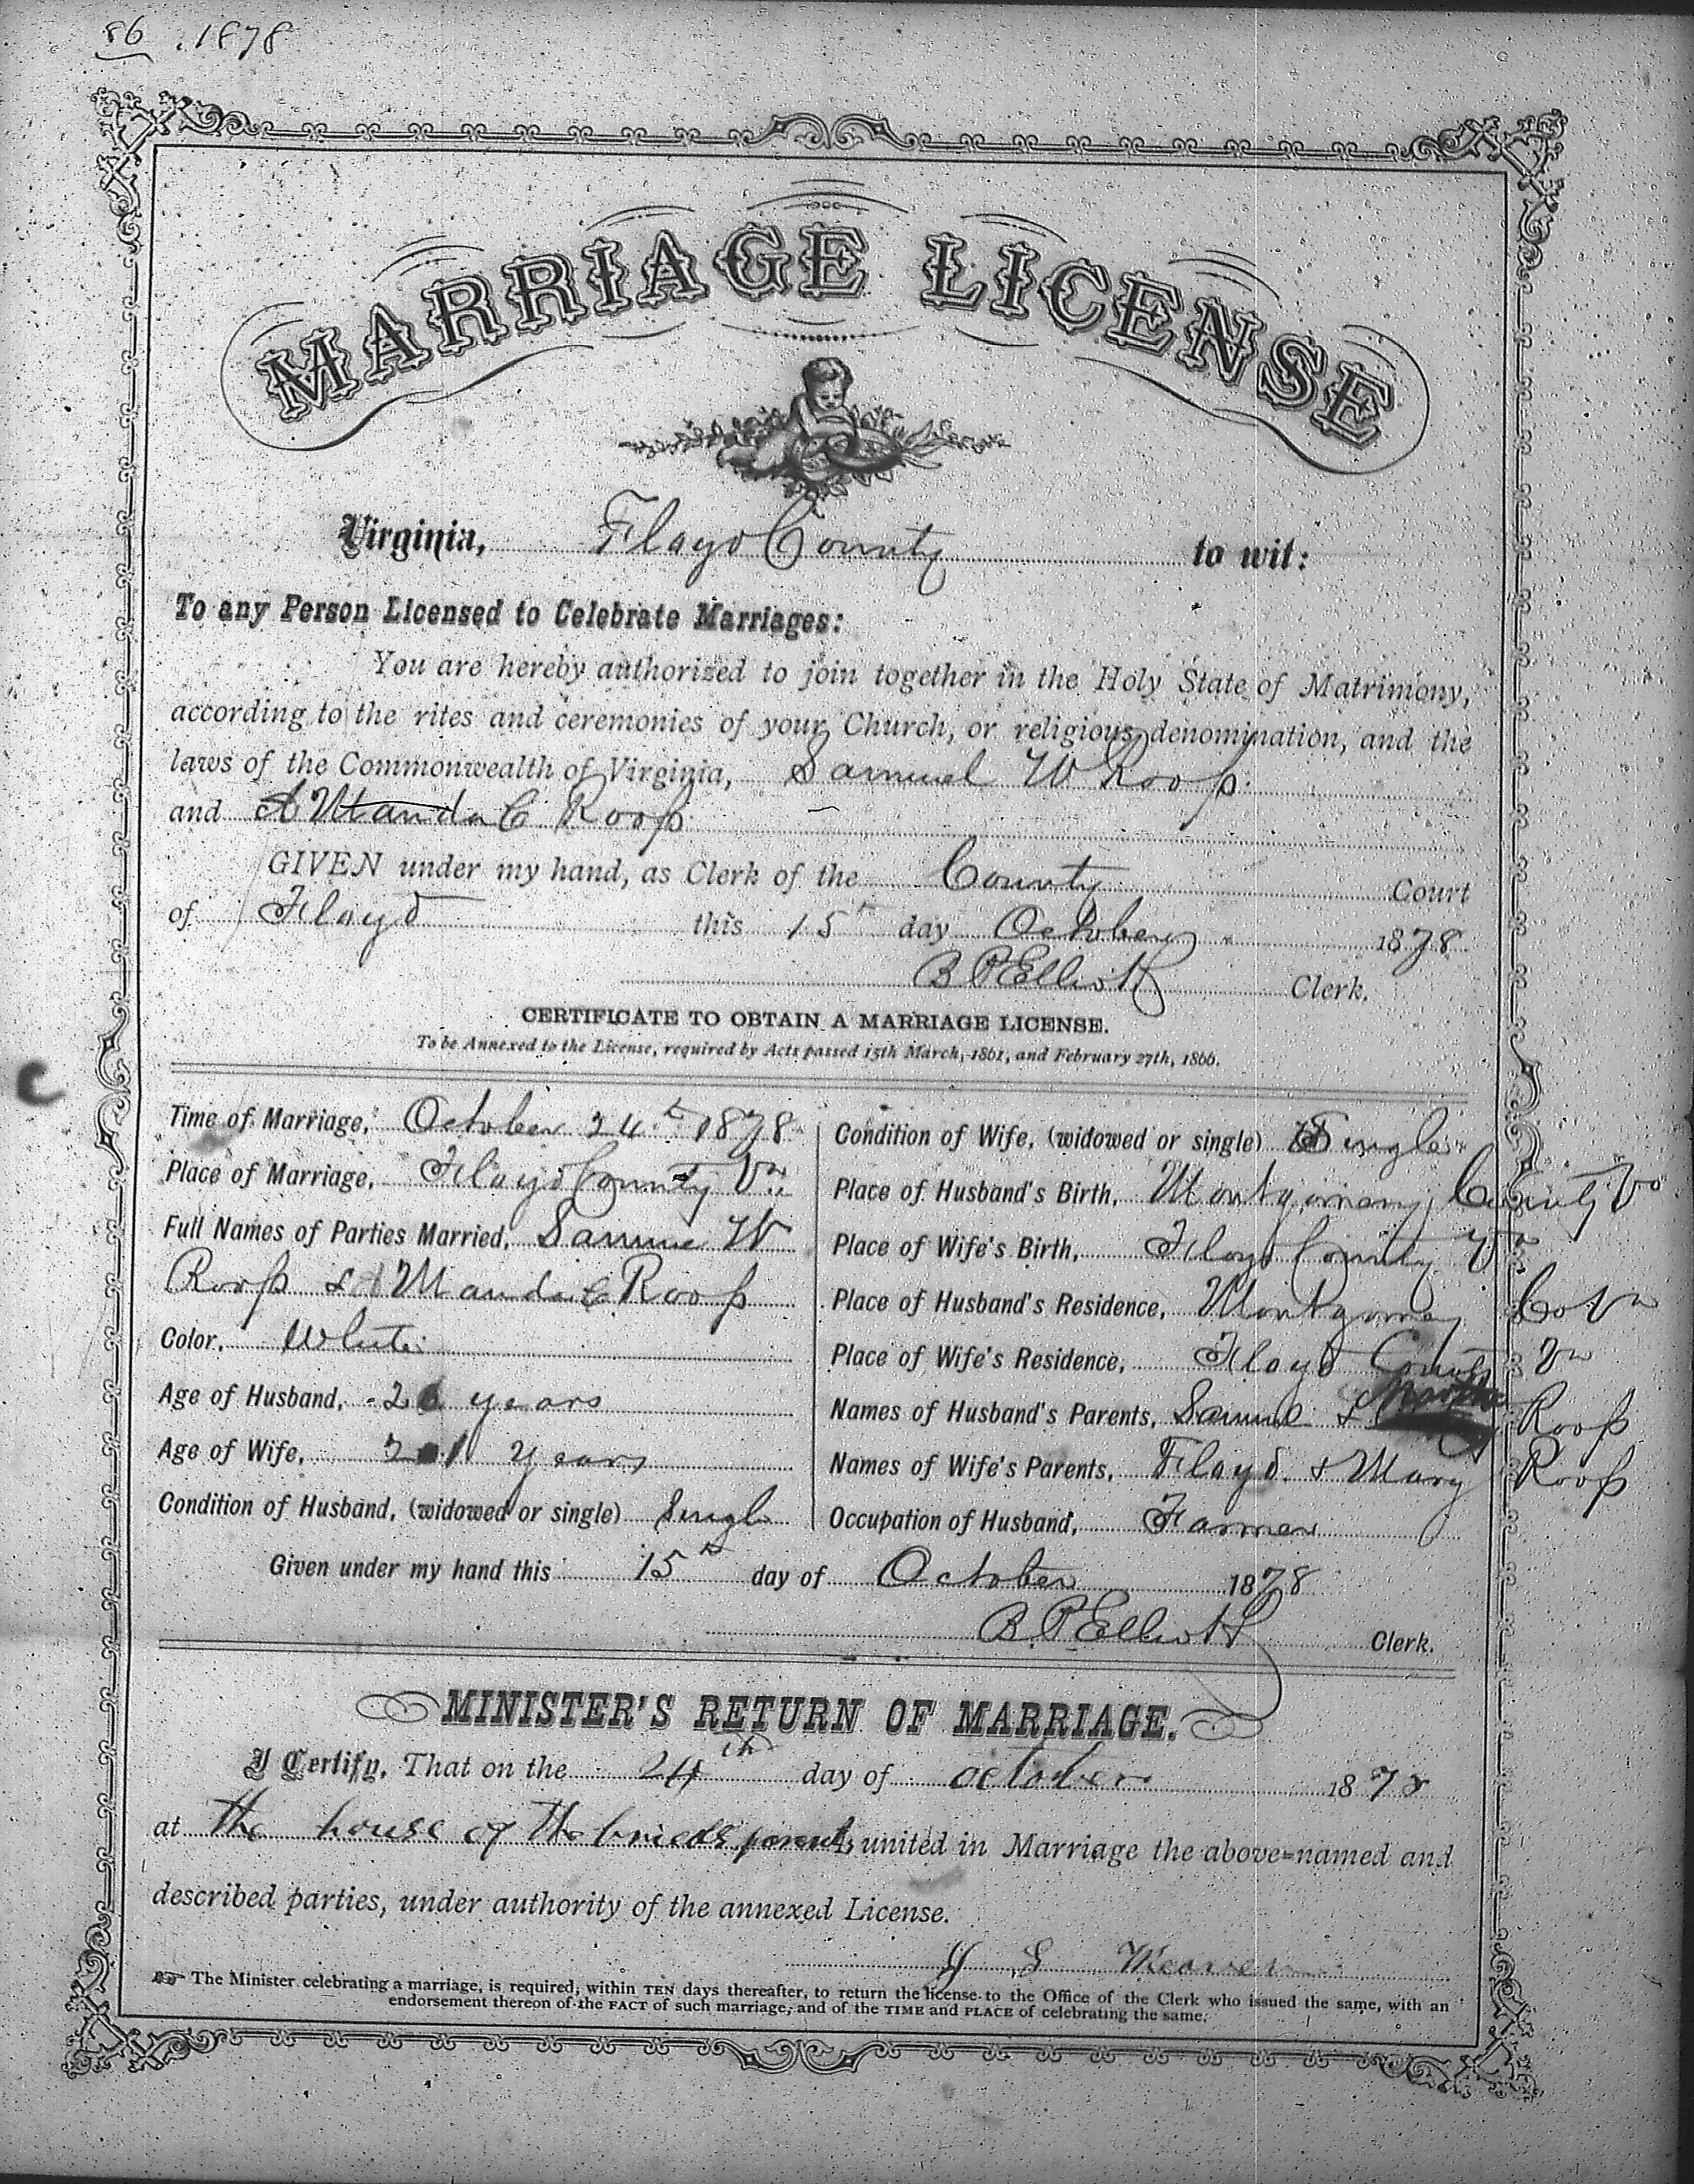 86, 1878
MARRIAGE LICENSE
Virginia, Floyd County to wit:
To any Person Licensed to Celebrate Marriages:
You are hereby authorized to join together in the Holy State of Matrimony,
according to the rites and ceremonies of your Church, or religious denomination, and the
laws of the Commonwealth of Virginia, Samuel W Roop
and A Manda C Roop
GIVEN under my hand, as Clerk of the County Court
of Floyd this 15th day October 1878
B P Elliott Clerk.
CERTIFICATE TO OBTAIN A MARRIAGE LICENSE.
To be Annexed to the License, required by Acts passed 15th March, 1861, and February 27th, 1866.
Time of Marriage, October 24th 1878
Place of Marriage, Floyd County Va
Full Names of Parties Married, Samuel W
Roop & A Manda C Roop
Color, White
Age of Husband, years
Age of Wife, 21 years
Condition of Husband, (widowed or single) Single
Condition of Wife, (widowed or single) Single
Place of Husband's Birth, Montgomery County Va
Place of Wife's Birth, Floyd County Va
Place of Husband's Residence, Montgomery Co Va
Place of Wife's Residence, Floyd County Va
Names of Husband's Parents, Samuel & Roop
Names of Wife's Parents, Floyd & Mary Roop
Occupation of Husband, Farmer
Given under my hand this 15th day of October 1878
B. P Elliott Clerk.
MINISTER'S RETURN OF MARRIAGE.
I Certify, That on the 24th day of october 1878
at the house of the brieds parents, united in Marriage the above-named and
described parties, under authority of the annexed License.
J S Weaver
The Minister celebrating a marriage, is required, within TEN days thereafter, to return the license to the Office of the Clerk who issued the same, with an
endorsement thereon of the FACT of such marriage, and of the TIME and PLACE of celebrating the same.
C